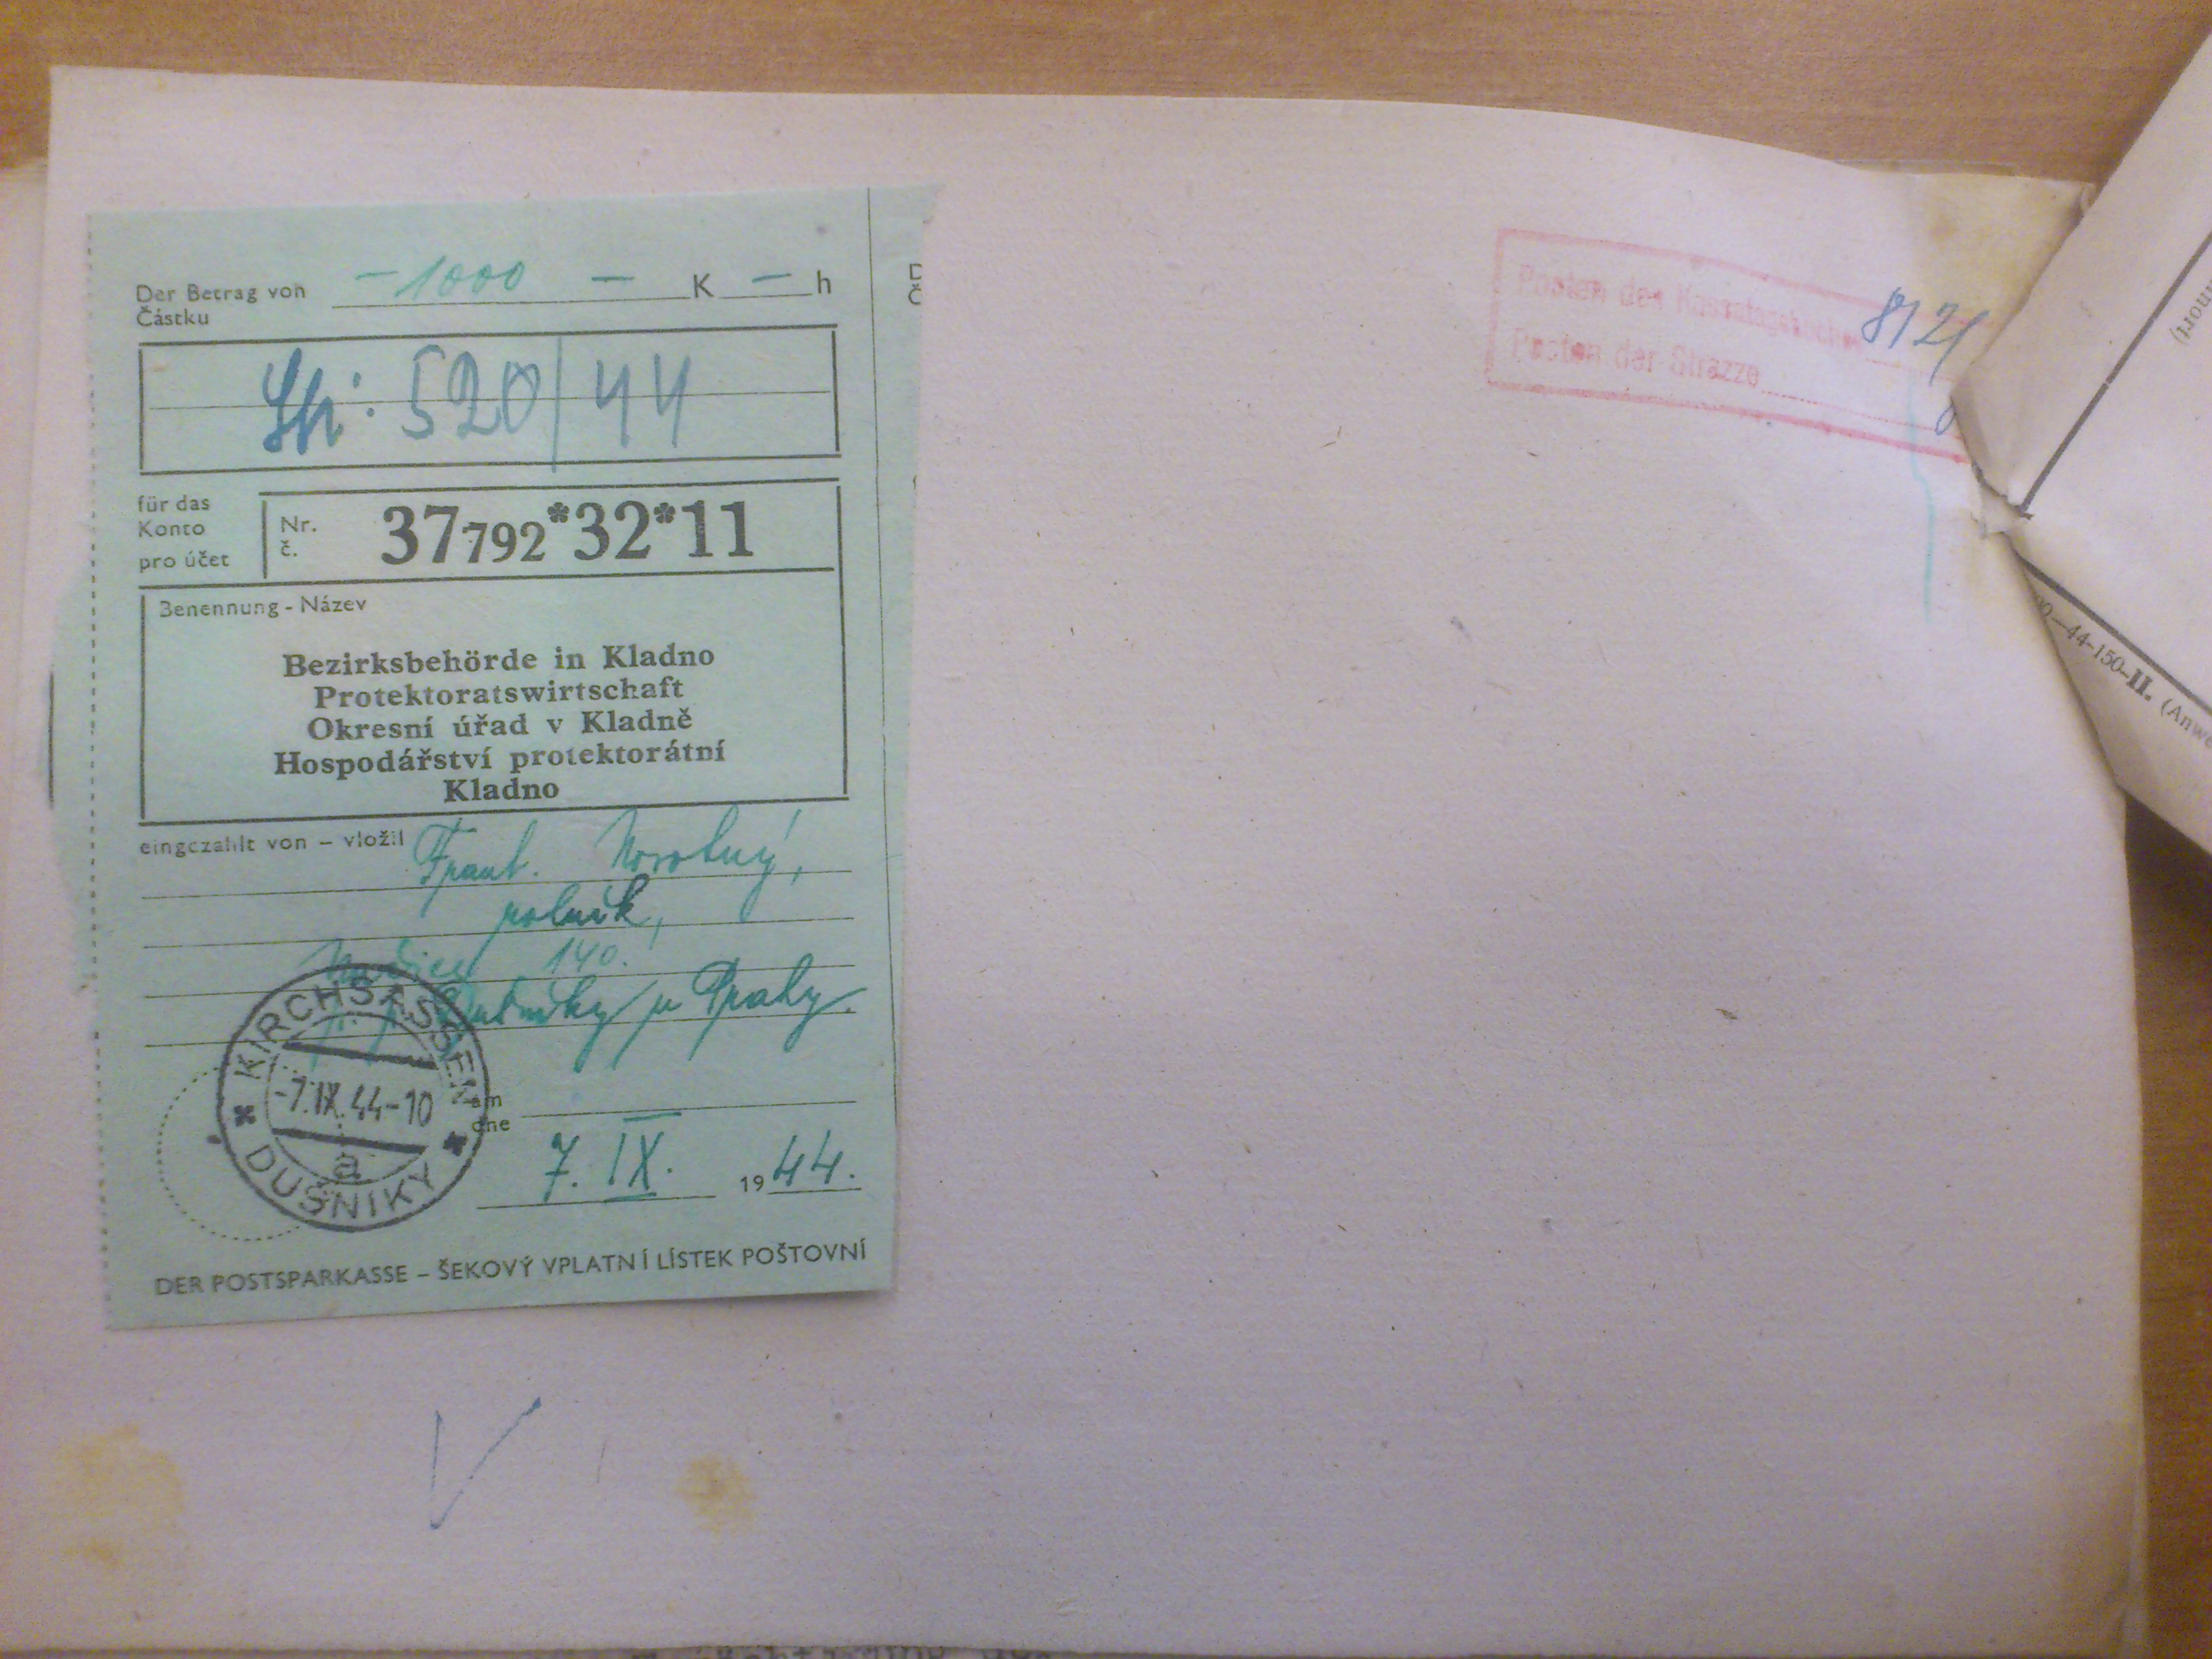 Der Betrag von
Částku
– 1000 – K – h
520/44
für das
Konto
pro účet
Nr.
č.
37792*32*11
Benennung - Název
Bezirksbehörde in Kladno
Protektoratswirtschaft
Okresní úřad v Kladně
Hospodářství protektorátní
Kladno
eingezahlt von – vložil Frant. Novotný,
rolník,
140.
Dušníky u Prahy.
KIRCHSASSEN
-7.IX.44-10
a
DUŠNIKY
am
dne
7. IX. 1944.
DER POSTSPARKASSE – ŠEKOVÝ VPLATNÍ LÍSTEK POŠTOVNÍ
D
Č
Posten des
Posten der Strazze
44-150-II. (Anwe